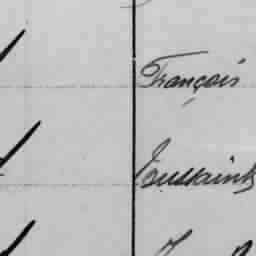 François
Toussaint